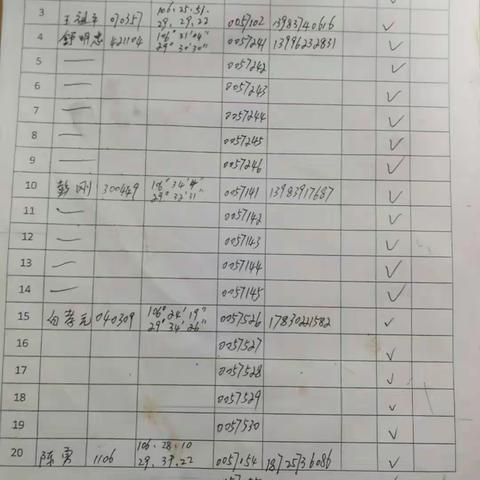 3 070357 106.25.51. 29.29.22 0057102 13983740616 ✓
4 舒明忠 421104 106°31'04" 29°30'30" 0057241 13996232831 ✓
5 — 0057242 ✓
6 — 0057243 ✓
7 — 0057244 ✓
8 — 0057245 ✓
9 — 0057246 ✓
10 彭刚 300449 106°34'4" 29°32'31" 0057141 13983917687 ✓
11 — 0057142 ✓
12 — 0057143 ✓
13 — 0057144 ✓
14 — 0057145 ✓
15 040309 106°24'19" 29°34'26" 0057526 17830221582 ✓
16 0057527 ✓
17 0057528 ✓
18 0057529 ✓
19 0057530 ✓
20 陈勇 1106 106.28.10 29.39.22 0057054 18725736086 ✓